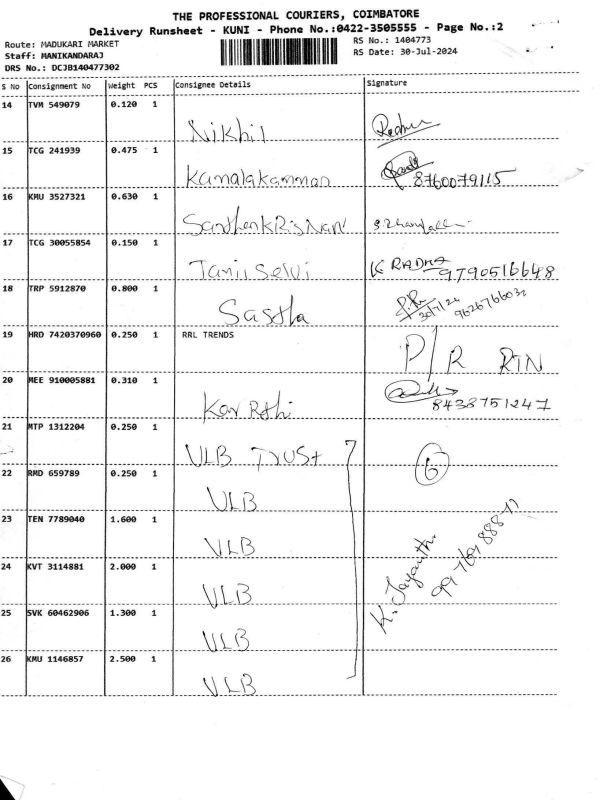 THE PROFESSIONAL COURIERS, COIMBATORE
Delivery Runsheet - KUNI - Phone No.:0422-3505555 - Page No.:2
Route: MADUKARI MARKET
RS No.: 1404773
Staff: MANIKANDARAJ
RS Date: 30-Jul-2024
DRS No.: DCJB140477302
S No Consignment No Weight PCS Consignee Details Signature
14 TVM 549079 0.120 1
Nikhil
15 TCG 241939 0.475 1
Kamalakannan 8760079115
16 KMU 3527321 0.630 1
17 TCG 30055854 0.150 1
Tamil Selvi K RADHA 9790516648
18 TRP 5912870 0.800 1
Sastha 30/7/24 9626766032
19 HRD 7420370960 0.250 1 RRL TRENDS
P/R RTN
20 MEE 910005881 0.310 1
8438751247
21 MTP 1312204 0.250 1
VLB Trust 6
22 RMD 659789 0.250 1
VLB
23 TEN 7789040 1.600 1
VLB
24 KVT 3114881 2.000 1
VLB K. Jayanth.
25 SVK 60462906 1.300 1
VLB
26 KMU 1146857 2.500 1
VLB